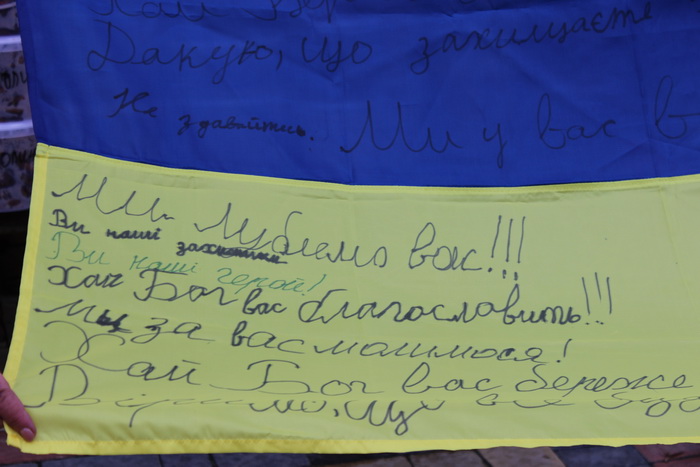 Хай
Дякую, що захищаєте
Не здавайтись. Ми у вас в
Ми Любимо вас!!!
Ви наші захисники
Ви наші герої!
Хай Бог вас благословить!!!
Мы за вас молимося!
Хай Бог вас береже
Віримо, що